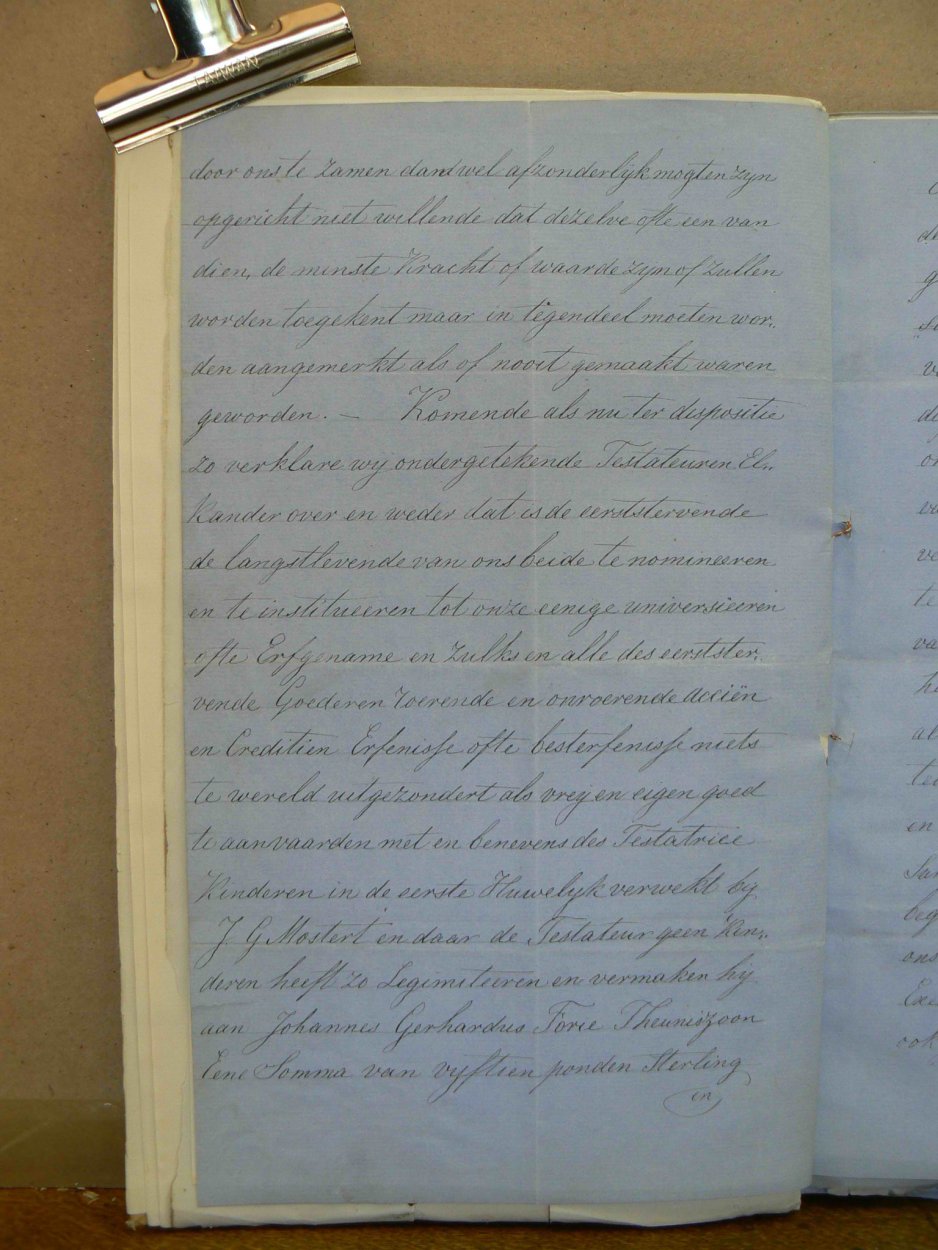 TAIWAN
door ons te zamen dan wel afzonderlyk mogten zyn
opgericht niet willende dat dezelve ofte een van
dien, de minste Kracht of waarde zyn of zullen
worden toegekent maar in tegendeel moeten wor„
den aangemerkt als of nooit gemaakt waren
geworden. — Komende als nu ter dispositie
zo verklare wy ondergetekende Testateuren El„
kander over en weder dat is de eerststervende
de langstlevende van ons beide te nomineeren
en te institueeren tot onze eenige universieeren
ofte Erfgename en zulks en alle des eerstster„
vende Goederen roerende en onroerende acciën
en Creditien Erfenisse ofte besterfenisse niets
te wereld uitgezondert als vrey en eigen goed
te aanvaarden met en benevens des Testatrice
Kinderen in de eerste Huwelyk verwekt by
J. G Mostert en daar de Testateur geen Kin„
deren heeft zo Legimiteeren en vermaken hy
aan Johannes Gerhardus Forie Theuniszoon
Eene Somma van vyftien ponden Sterling
in